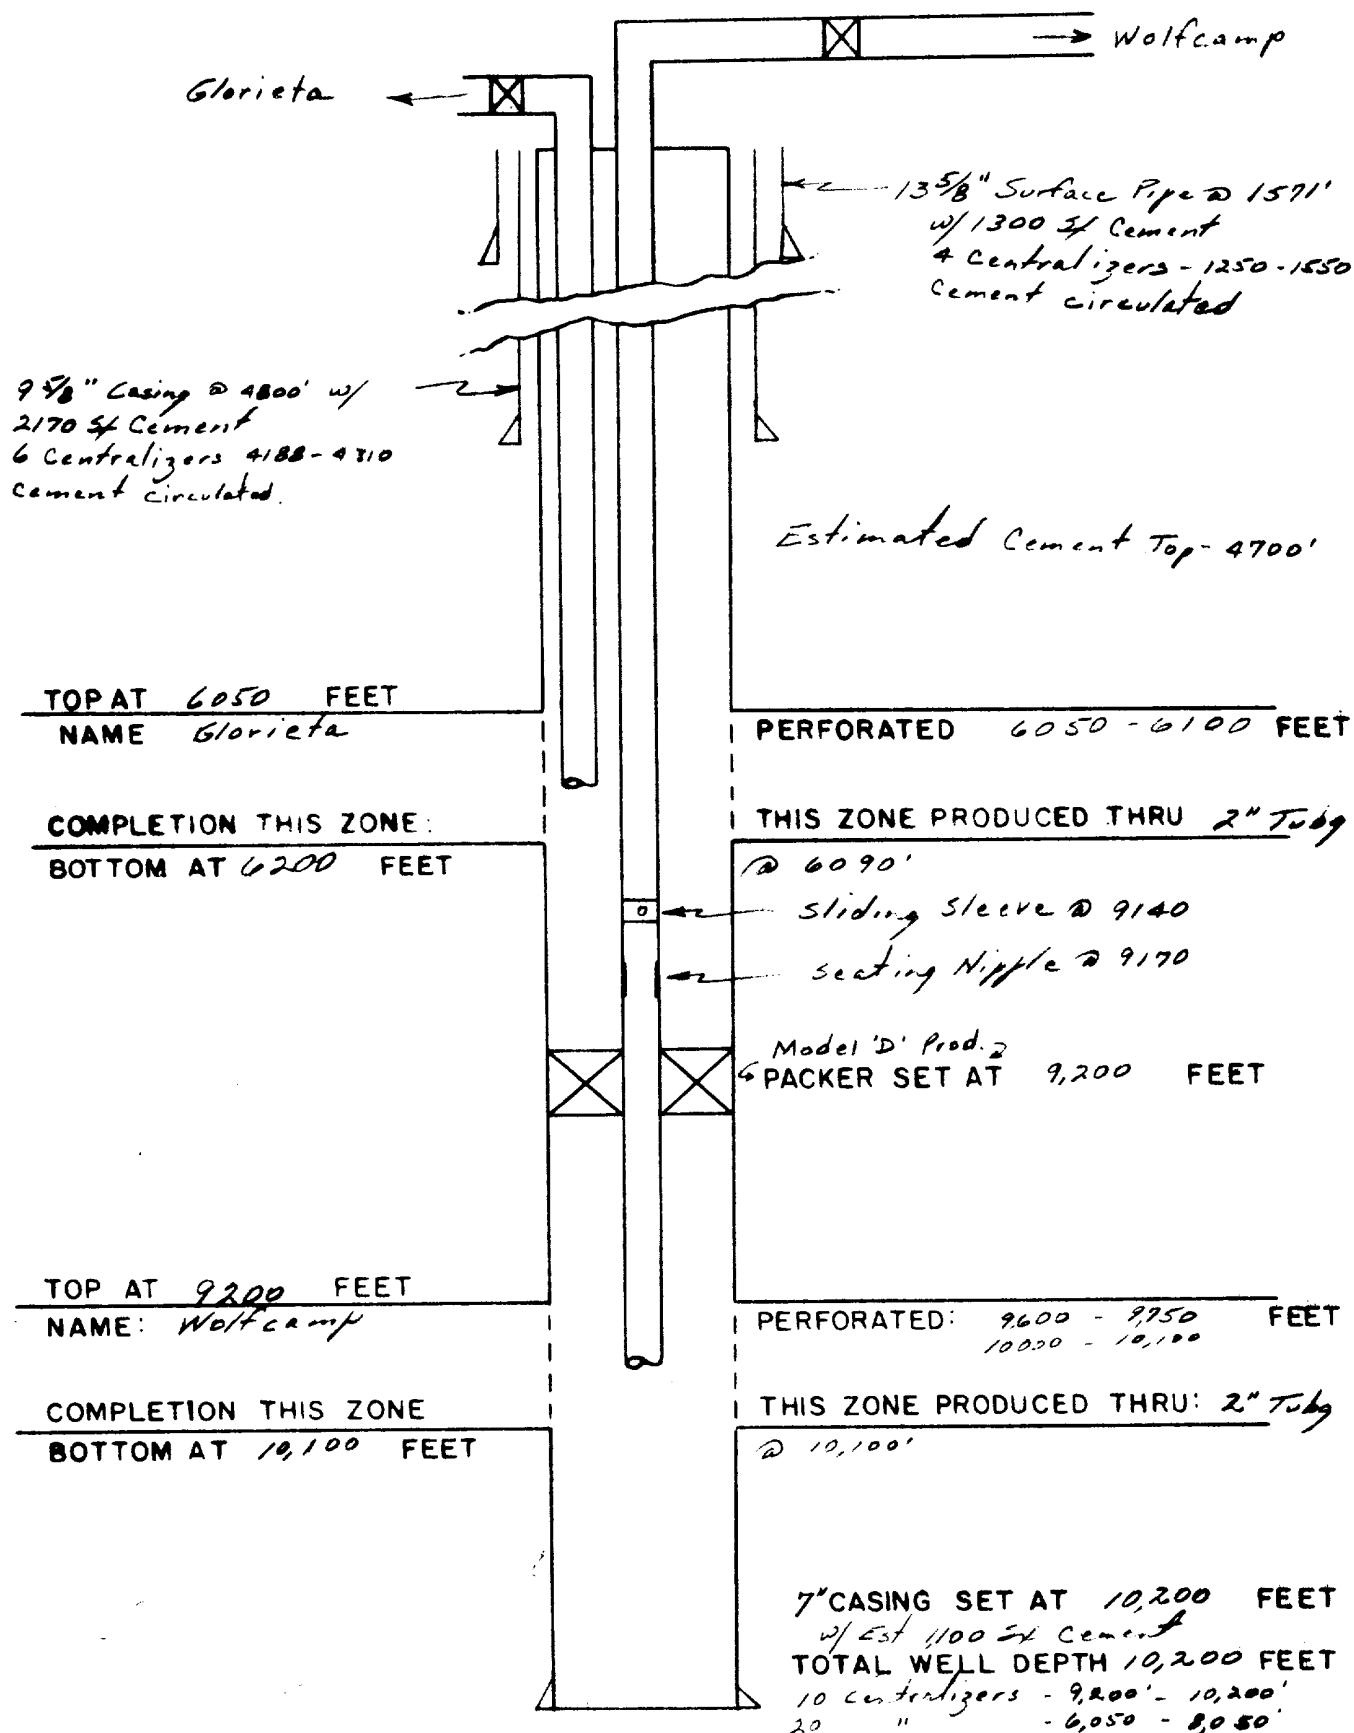 Wolfcamp
Glorieta
13 5/8" Surface Pipe @ 1571'
w/ 1300 Sx Cement
4 Centralizers - 1250 - 1550
Cement circulated
9 5/8" Casing @ 4800' w/
2170 Sx Cement
6 Centralizers 4188 - 4310
Cement circulated.
Estimated Cement Top - 4700'
TOP AT 6050 FEET
NAME Glorieta
PERFORATED 6050 - 6100 FEET
COMPLETION THIS ZONE:
BOTTOM AT 6200 FEET
THIS ZONE PRODUCED THRU 2" Tubg
@ 6090'
Sliding Sleeve @ 9140
Seating Nipple @ 9170
Model 'D' Prod.
PACKER SET AT 9,200 FEET
TOP AT 9200 FEET
NAME: Wolfcamp
PERFORATED: 9600 - 9750 FEET
10000 - 10,100
COMPLETION THIS ZONE
BOTTOM AT 10,100 FEET
THIS ZONE PRODUCED THRU: 2" Tubg
@ 10,100'
7" CASING SET AT 10,200 FEET
w/ Est 1100 Sx Cement
TOTAL WELL DEPTH 10,200 FEET
10 Centralizers - 9,200' - 10,200'
20 " - 6,050 - 8,050'